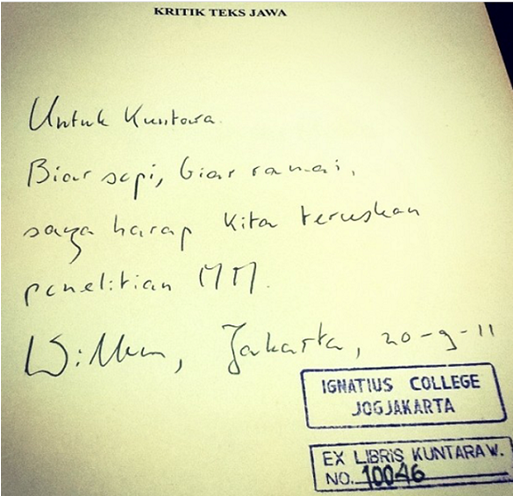 KRITIK TEKS JAWA
Untuk Kuntara.
Biar sepi, biar ramai,
saya harap kita teruskan
penelitian MM.
Willem, Jakarta, 20-9-11
IGNATIUS COLLEGE
JOGJAKARTA
EX LIBRIS KUNTARA W.
NO. 10046